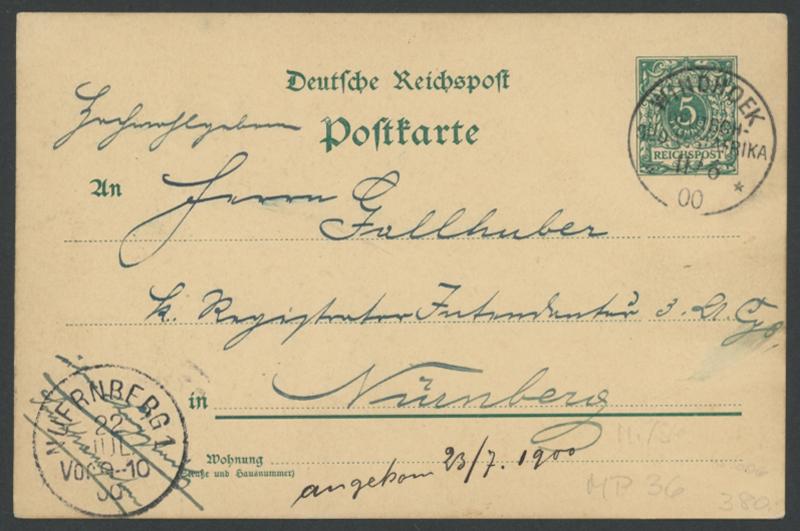 Deutsche Reichspost
Postkarte
5
PFENNIG
REICHSPOST
WINDHOEK
DEUTSCH-
SÜDWESTAFRIKA
11/6
00
Hochwohlgeboren
An Herrn
Fallhuber
k. Registrator Intendantur 3. A. Cps.
in Nürnberg
NUERNBERG 1.
22
JUL
Vor. 9-10
00
Wohnung
(Straße und Hausnummer)
angekom 23/7. 1900
MP 36
380.-